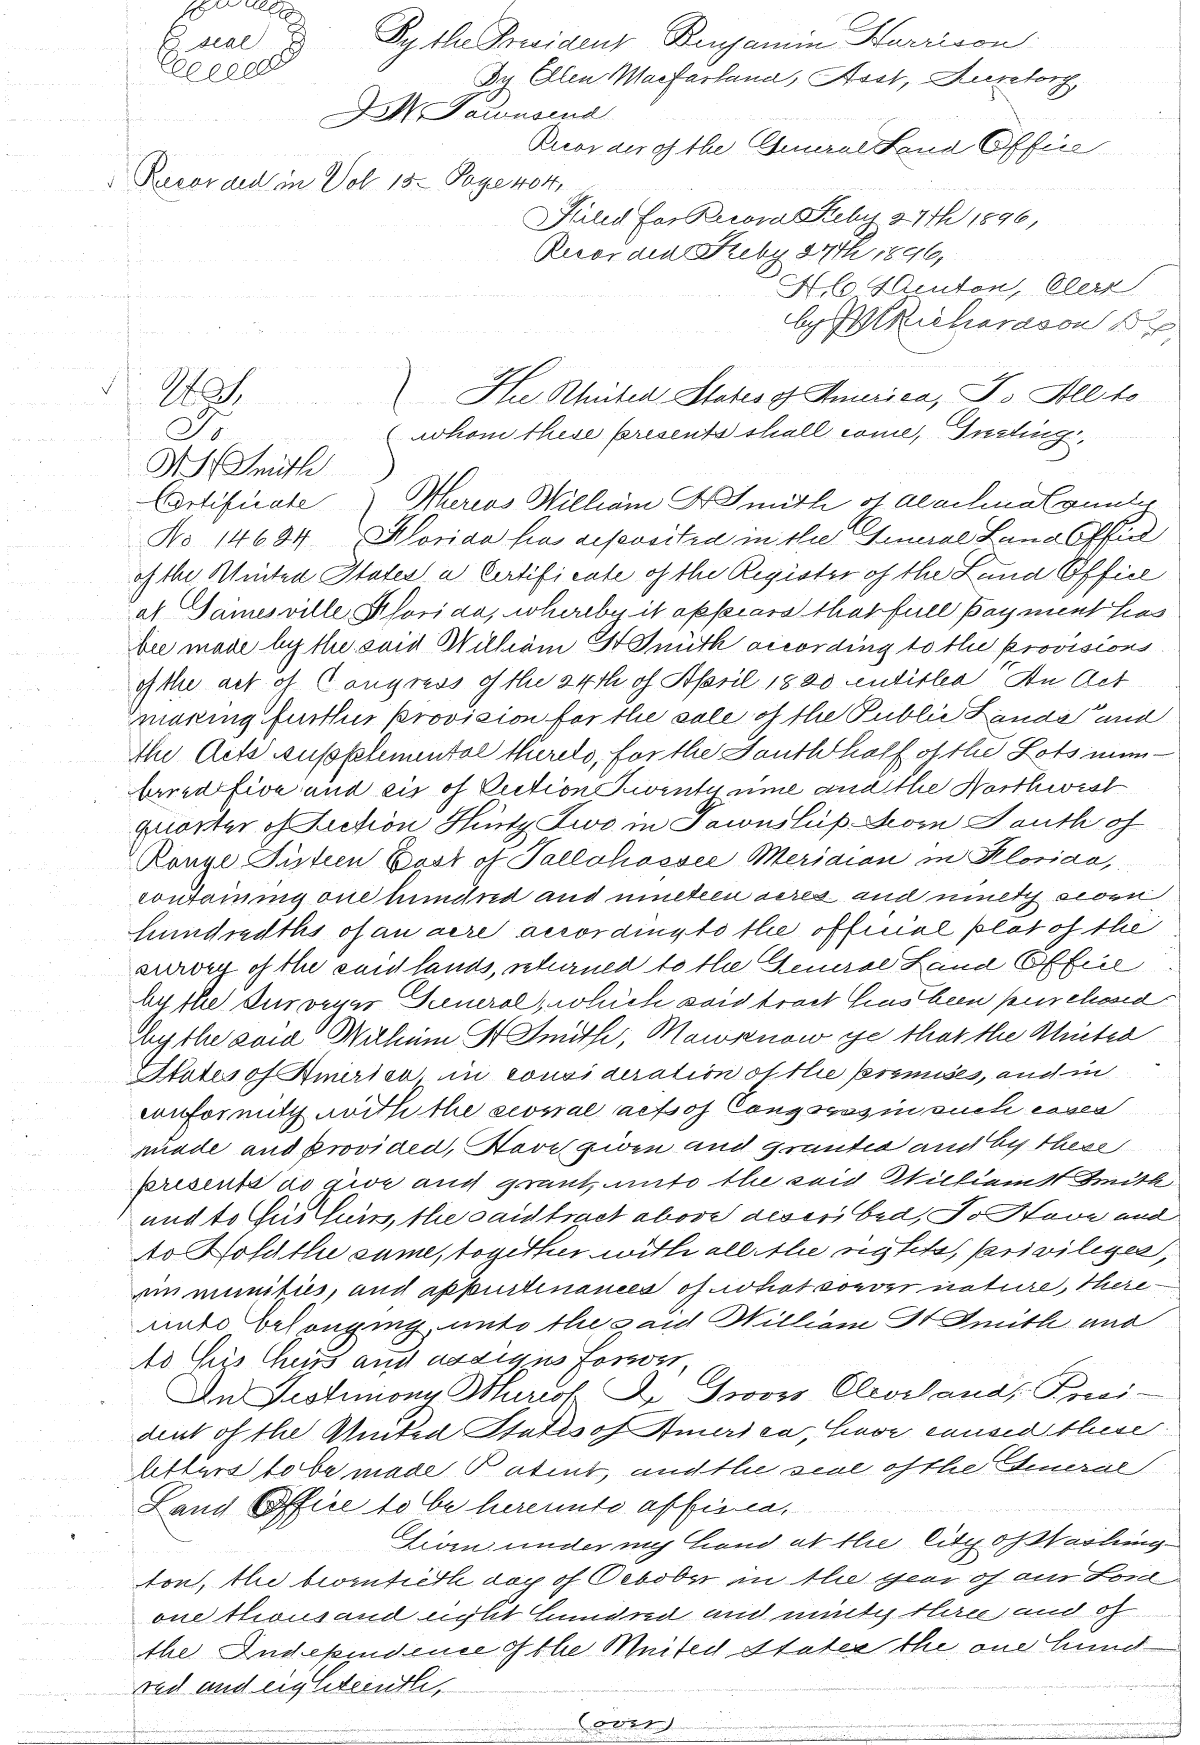 seal
By the President Benjamin Harrison
By Ellen Macfarland, Asst, Secretary,
Townsend
Recorder of the General Land Office
Recorded in Vol 15- Page 404,
Filed for Record Feby 27th 1896,
Recorded Feby 27th 1896,
H. C. Denton, Clerk
by Richardson D.C.
U.S,
To
W H Smith
Certificate
No 14624
The United States of America, To All to
whom these presents shall come, Greeting:,
Whereas William H Smith of Alachua County
Florida has deposited in the General Land Office
of the United States a Certificate of the Register of the Land Office
at Gainesville Florida, whereby it appears that full payment has
bee made by the said William H Smith according to the provisions
of the act of Congress of the 24th of April 1820 entitled "An Act
making further provision for the sale of the Public Lands" and
the Acts supplemental thereto, for the South half of the Lots num-
bered five and six of Section Twenty nine and the Northwest
quarter of Section Thirty Two in Township Seven South of
Range Sixteen East of Tallahassee Meridian in Florida,
containing one hundred and nineteen acres and ninety seven
hundredths of an acre according to the official plat of the
survey of the said lands, returned to the General Land Office
by the Surveyer General, which said tract has been purchased
by the said William H Smith, Now know ye that the United
States of America, in consideration of the premises, and in
conformity with the several acts of Congress in such cases
made and provided, Have given and granted and by these
presents do give and grant, unto the said William H Smith
and to his heirs, the said tract above described, To Have and
to Hold the same, together with all the rights, privileges,
immunities, and appurtenances of whatsoever nature, there-
unto belonging, unto the said William H Smith and
to his heirs and assigns forever,
In Testimony Whereof I, Grover Cleveland, Presi-
dent of the United States of America, have caused these
letters to be made Patent, and the seal of the General
Land Office to be hereunto affixed,
Given under my hand at the City of Washing-
ton, the twentieth day of October in the year of our Lord
one thousand eight hundred and ninety three and of
the Independence of the United States the one hund-
red and eighteenth,
(over)